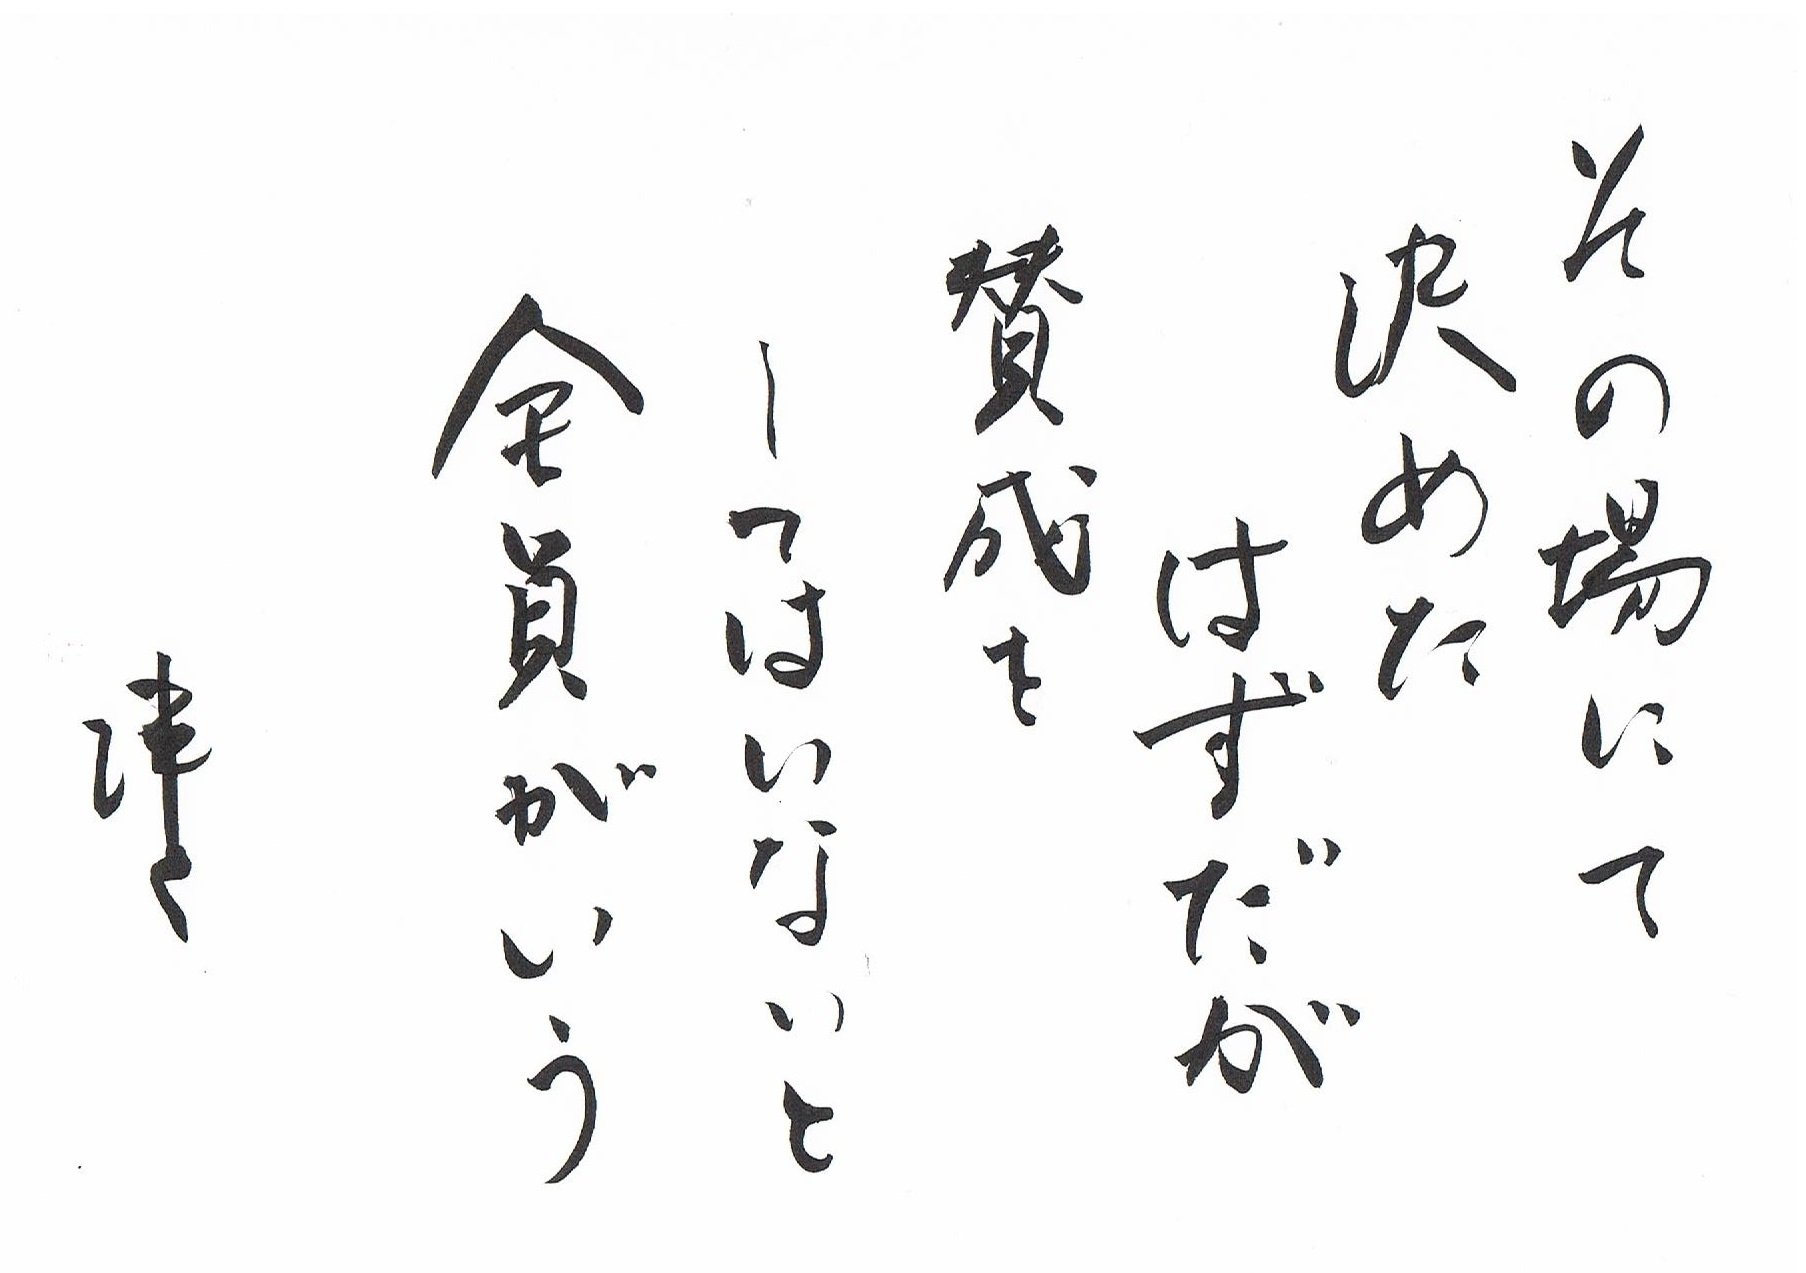 その場にて
決めた
はずだが
賛成を
してはいないと
全員がいう